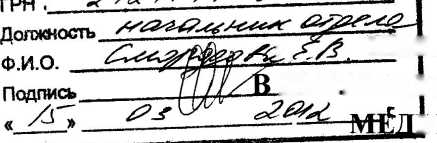 ГРН
Должность начальник отдела
Ф.И.О. Е.В.
Подпись В
« 15 » 03 2012 МЕД